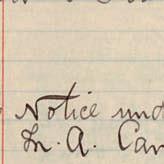 Notice und
In. A. Can